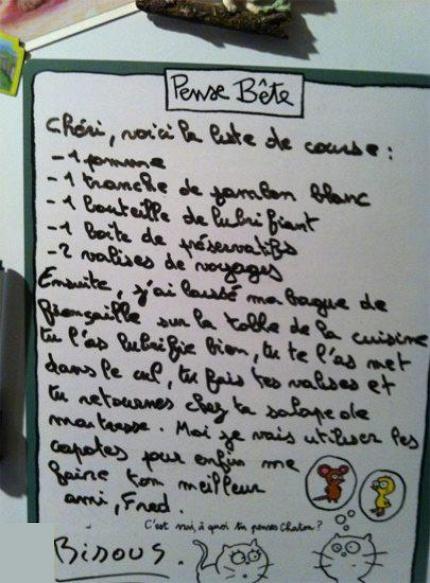 Pense Bête
Chéri, voici la liste de course :
- 1 pomme
- 1 tranche de jambon blanc
- 1 bouteille de lubrifiant
- 1 boite de préservatifs
- 2 valises de voyages
Ensuite, j'ai laissé ma bague de
fiançaille sur la table de la cuisine
tu l'as lubrifie bien, tu te l'as met
dans le cul, tu fais tes valises et
tu retournes chez ta salope de
maitresse. Moi je vais utiliser les
capotes pour enfin me
faire ton meilleur
ami, Fred.
C'est mimi, à quoi tu penses Chaton ?
Bisous.